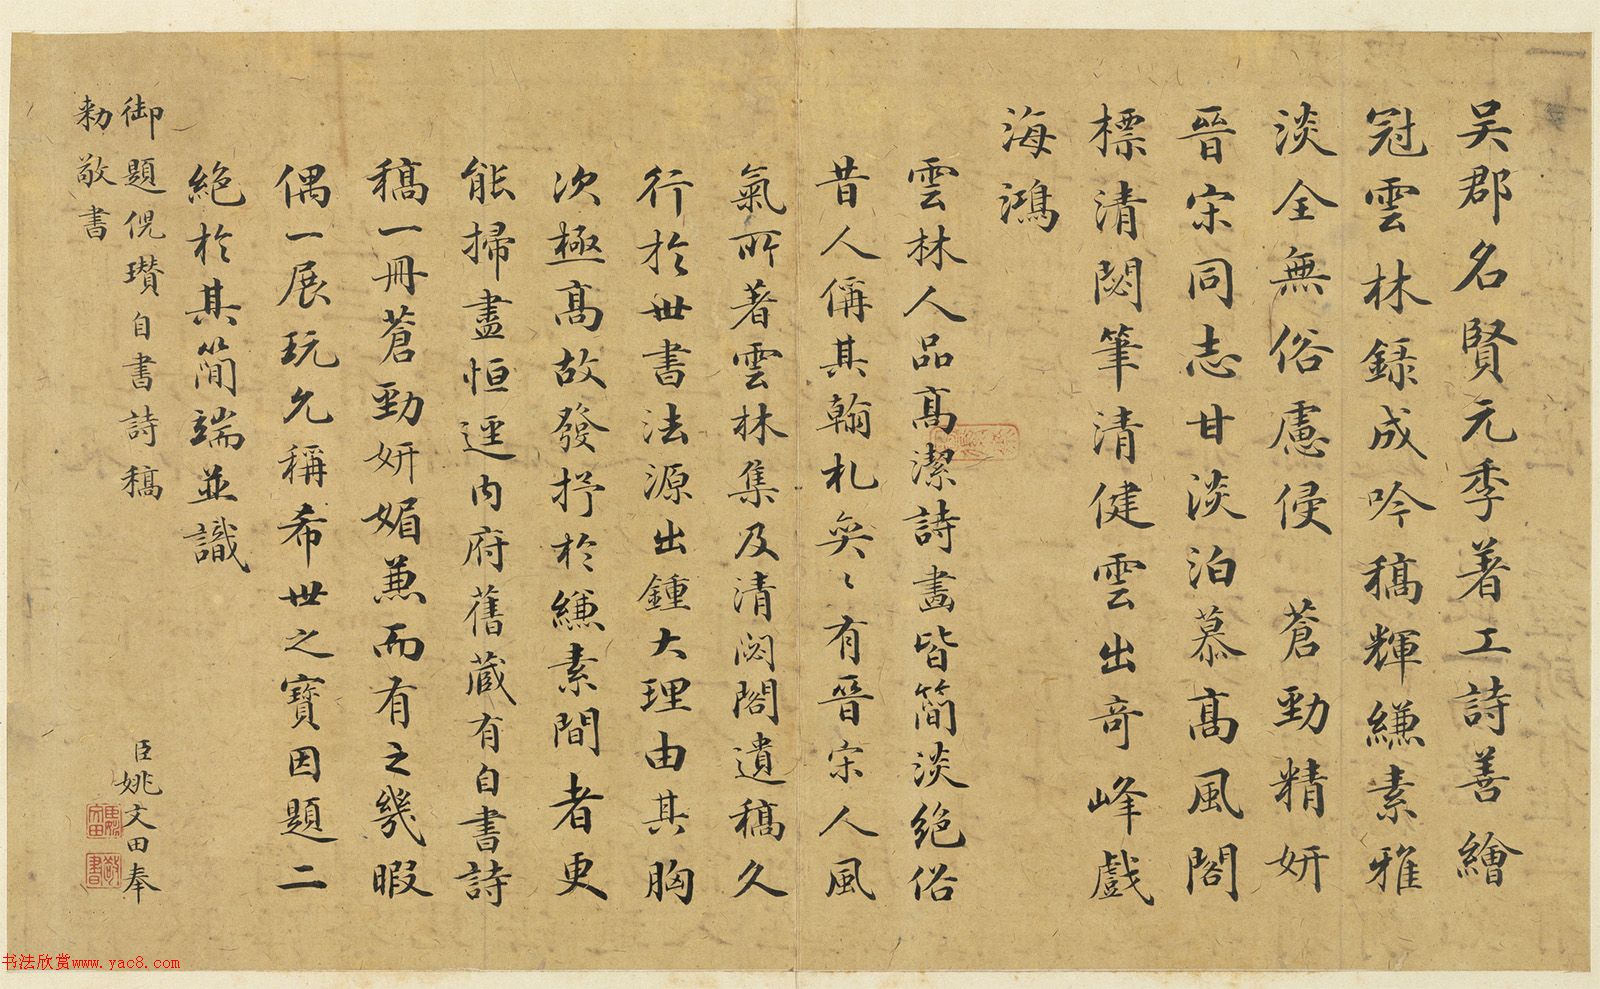 吴郡名賢元季著工詩善繪
冠雲林録成吟稿輝縑素雅
淡全無俗慮侵 蒼勁精妍
晉宋同志甘淡泊慕高風閣
標清閟筆清健雲出奇峰戲
海鴻
雲林人品高潔詩畫皆簡淡絕俗
昔人偁其翰札奕〻有晉宋人風
氣所著雲林集及清閟閣遺稿久
行於世書法源出鍾大理由其胸
次極高故發抒於縑素間者更
能掃盡恒逕内府舊藏有自書詩
稿一冊蒼勁妍媚兼而有之幾暇
偶一展玩允稱希世之寶因題二
絕於其簡端並識
御題倪瓚自書詩稿
臣姚文田奉
勅敬書
书法欣赏www.yac8.com